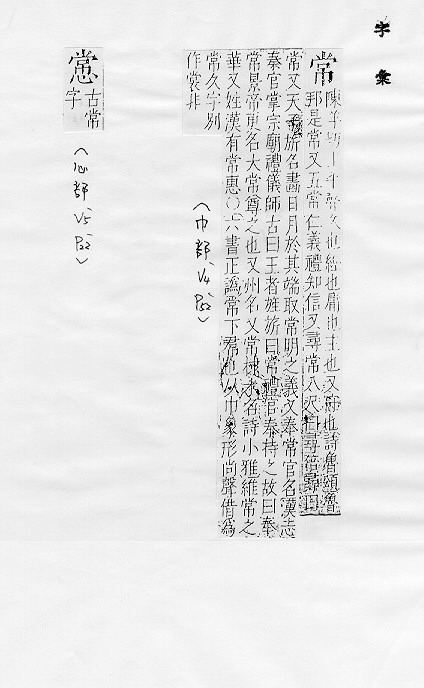 字彙
常
陳羊切上平聲久也經也庸也主也又
也詩魯頌魯
邦是常又五常仁義禮知信又尋常八尺曰尋倍尋曰
常又天子旂名畫日月於其端取常明之義又奉常官名漢志
奉官掌宗廟禮儀師古曰王者旌旂曰常禮官奉持之故曰奉
常景帝更名大常尊之也又州名又常棣木名詩小雅維常之
華又姓漢有常惠〇六書正譌常下君也从巾象形尚聲借爲
常久字別
作裳非
(巾部、V4、P52)
古常
字
(心部、V5、P22)